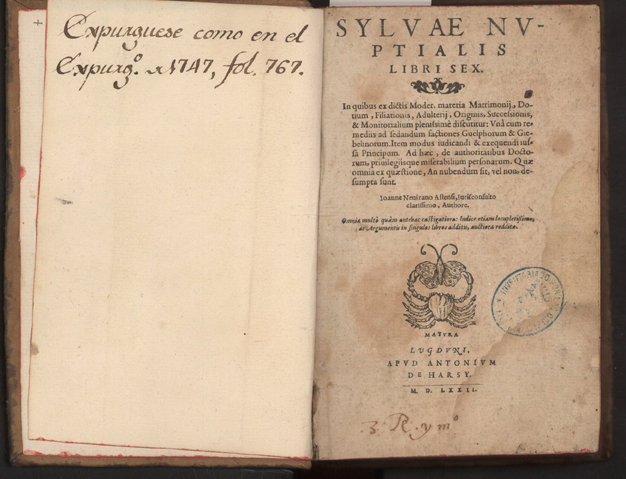 Expurguese como en el
Expurgº. de 1747, fol. 767.
SYLVAE NV-
PTIALIS
LIBRI SEX.
In quibus ex dictis Moder. materia Matrimonij, Do-
tium, Filiationis, Adulterij, Originis, Successionis,
& Monitorialium plenissimè discutitur: Vnà cum re-
mediis ad sedandum factiones Guelphorum & Gie-
belinorum. Item modus iudicandi & exequendi ius-
sa Principum. Ad hæc, de authoritatibus Docto-
rum, priuilegiisque miserabilium personarum. Quæ
omnia ex quæstione, An nubendum sit, vel non, de-
sumpta sunt.
Ioanne Neuizano Astensi, Iurisconsulto
clarissimo, Authore.
Omnia multò quàm antehac castigatiora: Indice etiam locupletissimo,
ac Argumentis in singulos libros additis, auctiora reddita.
MATVRA
LVGDVNI,
APVD ANTONIVM
DE HARSY.
M. D. LXXII.